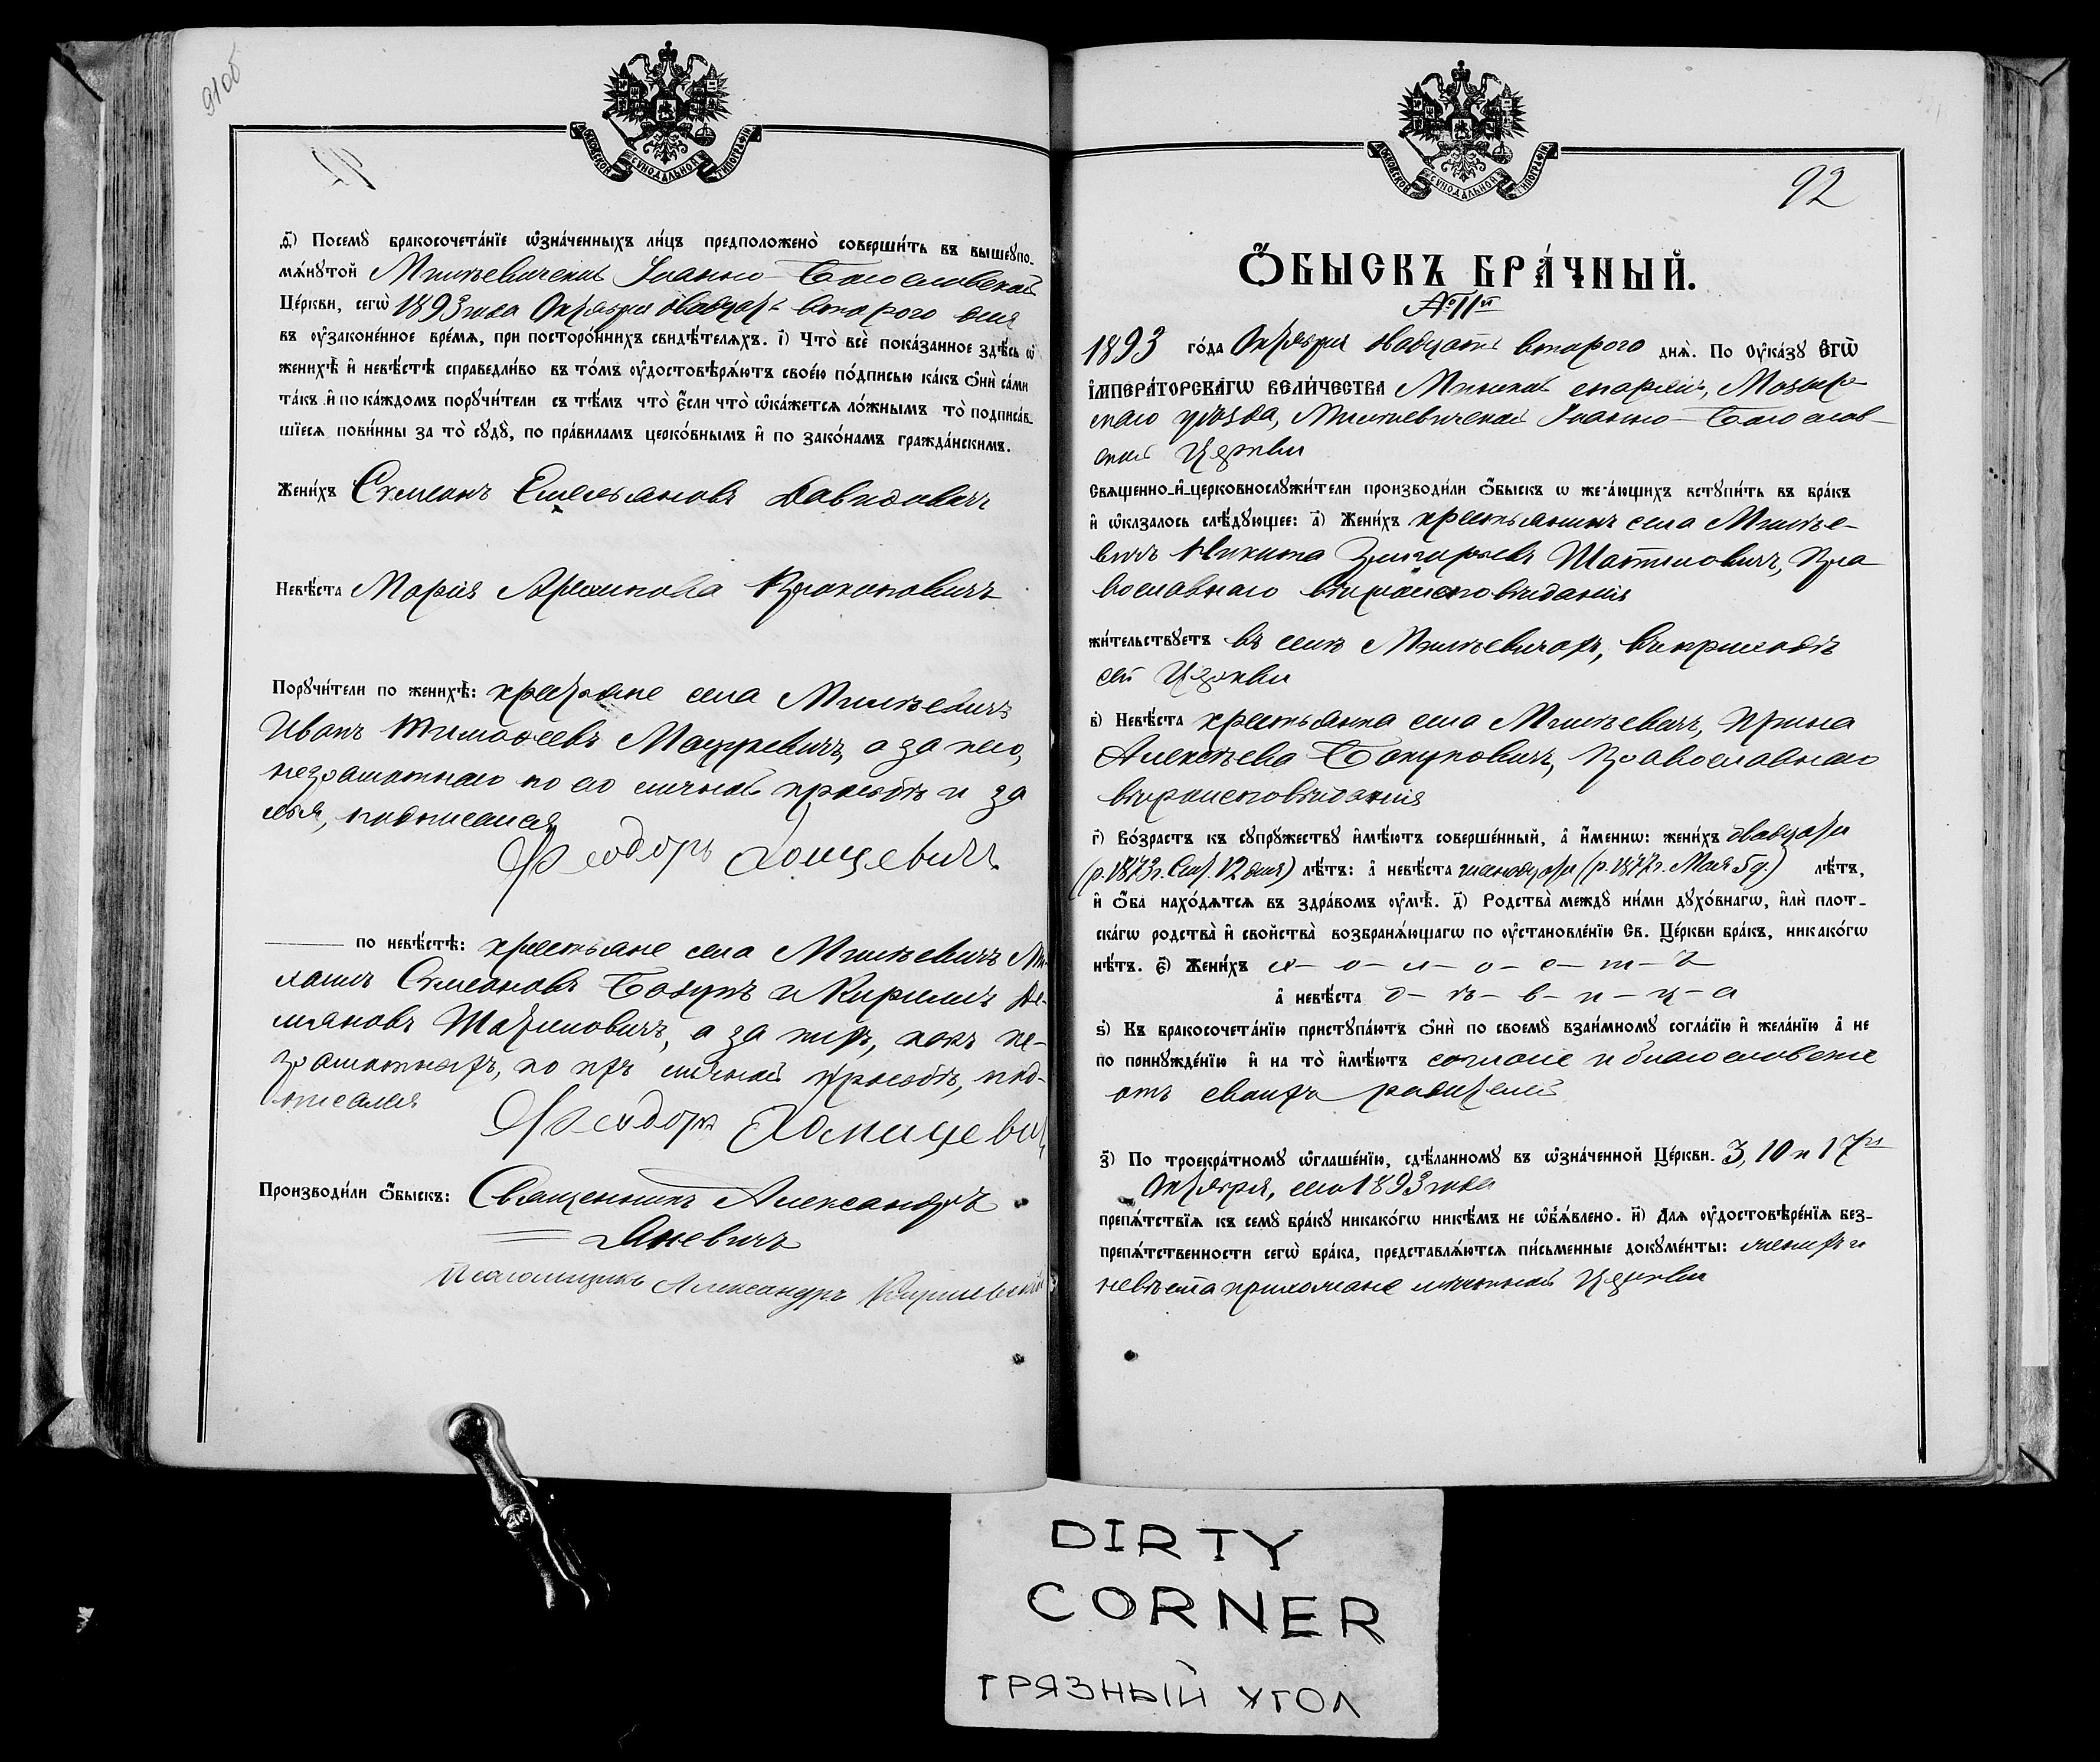 91об
МОСКОВСКОЙ СѴНОДАЛЬНОЙ ТИПОГРАФІИ
д҃і) Посемꙋ̀ бракосочета́нїе ѡ҆зна́ченныхъ ли́цъ предположено̀ соверши́ть въ вышеꙋпо-
мѧ́нꙋтой Милевичской Іоанно-Богословской
Це́ркви, сегѡ̀ 1893 года Октября двадцать второго дня
въ ᲂу҆зако́ненное вре́мѧ, при посторо́ннихъ свидѣ́телѧхъ. і҃) Что̀ всѐ пока́занное здѣ́сь ѡ҆
женихѣ̀ и҆ невѣ́стѣ справедли́во въ то́мъ ᲂу҆достовѣрѧ́ютъ свое́ю по́дписью ка́къ ѻ҆нѝ са́ми
та́къ и҆ по ка́ждомъ порꙋчи́тели съ тѣ́мъ что̀ є҆́сли что̀ ѡ҆ка́жетсѧ ло́жнымъ то̀ подписа́в-
шїесѧ пови́нны за то̀ сꙋдꙋ̀, по пра́виламъ церко́внымъ и҆ по зако́намъ гражда́нскимъ.
Жени́хъ Симеонъ Емельяновъ Давидовичъ
Невѣ́ста Марія Прокоповичъ
Порꙋчи́тели по женихѣ̀: крестьяне села Милевичъ
Иванъ Тимофеевъ Мацкевичъ, а за него,
неграмотнаго по его личной просьбѣ и за
себя, подписался
Ѳеодоръ Хомицевичъ
по невѣ́стѣ: крестьяне села Милевичъ Ми-
хаилъ Симеоновъ Бокунъ и Кириллъ Де-
мьяновъ Шатиловичъ, а за нихъ, какъ не-
грамотныхъ, по ихъ личной просьбѣ, под-
писался
Ѳеодоръ Хомицевич
Производи́ли ѻ҆́быскъ: Священникъ Александръ
Яневичъ
Псаломщикъ Александръ
МОСКОВСКОЙ СѴНОДАЛЬНОЙ ТИПОГРАФІИ
92
Ѻ҆́БЫСКЪ БРА́ЧНЫЙ.
№ 11й
1893 го́да Октября двадцать второго днѧ̀. По ᲂу҆ка́зꙋ Є҆ГѠ̀
І҆МПЕРА́ТОРСКАГѠ ВЕЛИ́ЧЕСТВА Минской епархіи, Мозыр-
скаго уѣзда, Милевичской Іоанно-Богослов-
ской Церкви
Свѧщенно-и҆-церковнослꙋжи́тели производи́ли ѻ҆́быскъ ѡ же́лающихъ встꙋпи́ть въ бра́къ
и҆ ѡ҆казалось слѣ́дꙋющее: а҃) Жени́хъ крестьянинъ села Милѣе-
вичъ Никита Григорьевъ Шатиловичъ, Пра-
вославнаго вѣроисповѣданія
жи́тельствꙋетъ въ селѣ Милѣевичахъ, въ приходѣ
сей Церкви
в҃) Невѣ́ста крестьянка села Милѣевичъ, Ирина
Алексѣева Бокуновичъ, Православнаго
вѣроисповѣданія
г҃) Во́зрастъ къ сꙋпрꙋ́жествꙋ и҆мѣ́ютъ соверше́нный, а҆ и҆́меннѡ: жени́хъ двадцати
(р. 1873 г. Сент. 12 дня) лѣ́тъ: а҆ невѣ́ста шестнадцати (р. 1877 г. Мая 5 д.) лѣ́тъ,
и҆ ѻ҆́ба нахо́дѧтсѧ въ здра́вомъ ᲂу҆мѣ̀. д҃) Родства̀ междꙋ̀ ни́ми дꙋхо́внагѡ, и҆лѝ плот-
ска́гѡ родства̀ и҆ сво́йства̀ возбранѧ́ющагѡ по ᲂу҆становле́нїю Св. Це́ркви бра́къ, никако́гѡ
нѣ́тъ. є҃) Жени́хъ х-о-л-о-с-т-ъ
а҆ невѣ́ста д-ѣ-в-и-ц-а
ѕ҃) Къ бракосочета́нїю пристꙋпа́ютъ ѻ҆нѝ по своемꙋ̀ взаи́мномꙋ согла́сїю и҆ жела́нїю а҆ не
по принꙋжде́нїю и҆ на то̀ и҆мѣ́ютъ согласіе и благословеніе
отъ своихъ родителей
з҃) По троекра́тномꙋ ѡ҆глаше́нїю, сдѣ́ланномꙋ въ ѡ҆зна́ченной Це́ркви. 3, 10 и 17го
Октября, сего 1893 года
препѧ́тствїѧ къ семꙋ̀ бра́кꙋ никако́гѡ никѣ́мъ не ѡ҆б̾ѧ́влено. и҃) Длѧ ᲂу҆достовѣре́нїѧ без-
препѧ́тственности сегѡ̀ бра́ка, представлѧ́ютсѧ пи́сьменные докꙋме́нты: женихъ и
невѣста прихожане мѣстной Церкви
DIRTY
CORNER
ГРЯЗНЫЙ УГОЛ